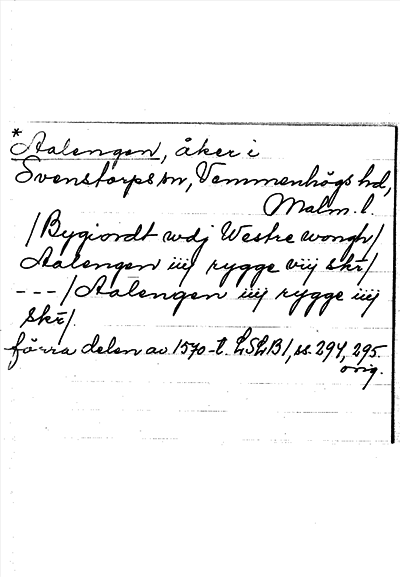 *Aalengen, åker i
Svenstorps sn, Vemmenhögs hd,
Malm. l.
/Bygiordt wdj Westre wongh/
Aalengen iiij rygge viij skr̄/
---/Aalengen iiij rygge iiij
skr̄/.
förra delen av 1570-t. LSLB1, ss. 294, 295.
orig.